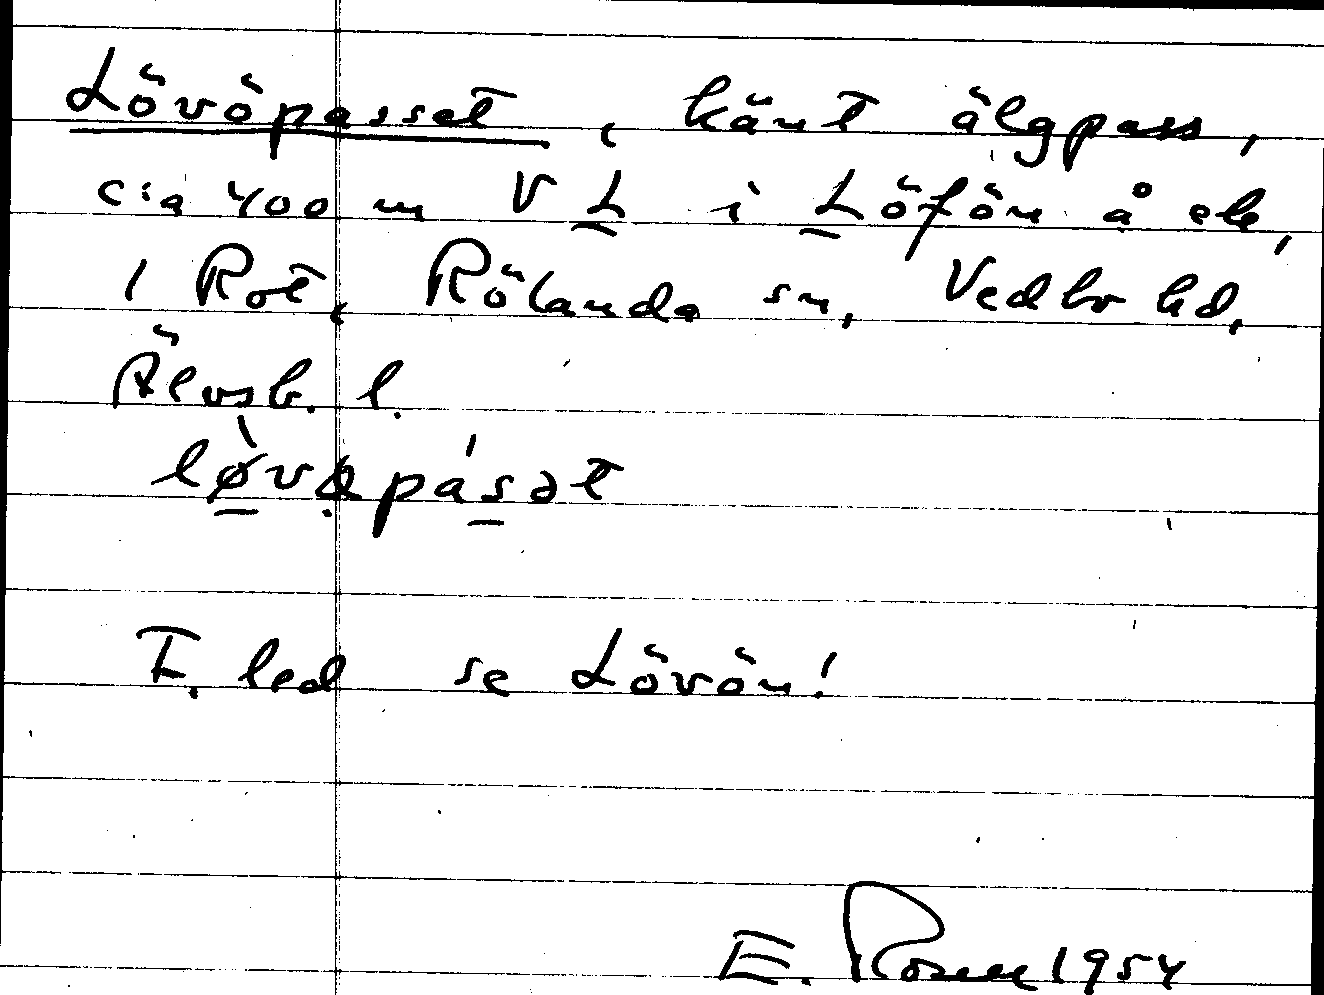 Lövöpasset, känt älgpass,
c:a 400 m V L i Löfön å ek,
1 Rot, Rölanda sn, Vedbo hd,
Älvsb. l.
løvøpásət
F. led se Lövön!
E. Rosell 1954